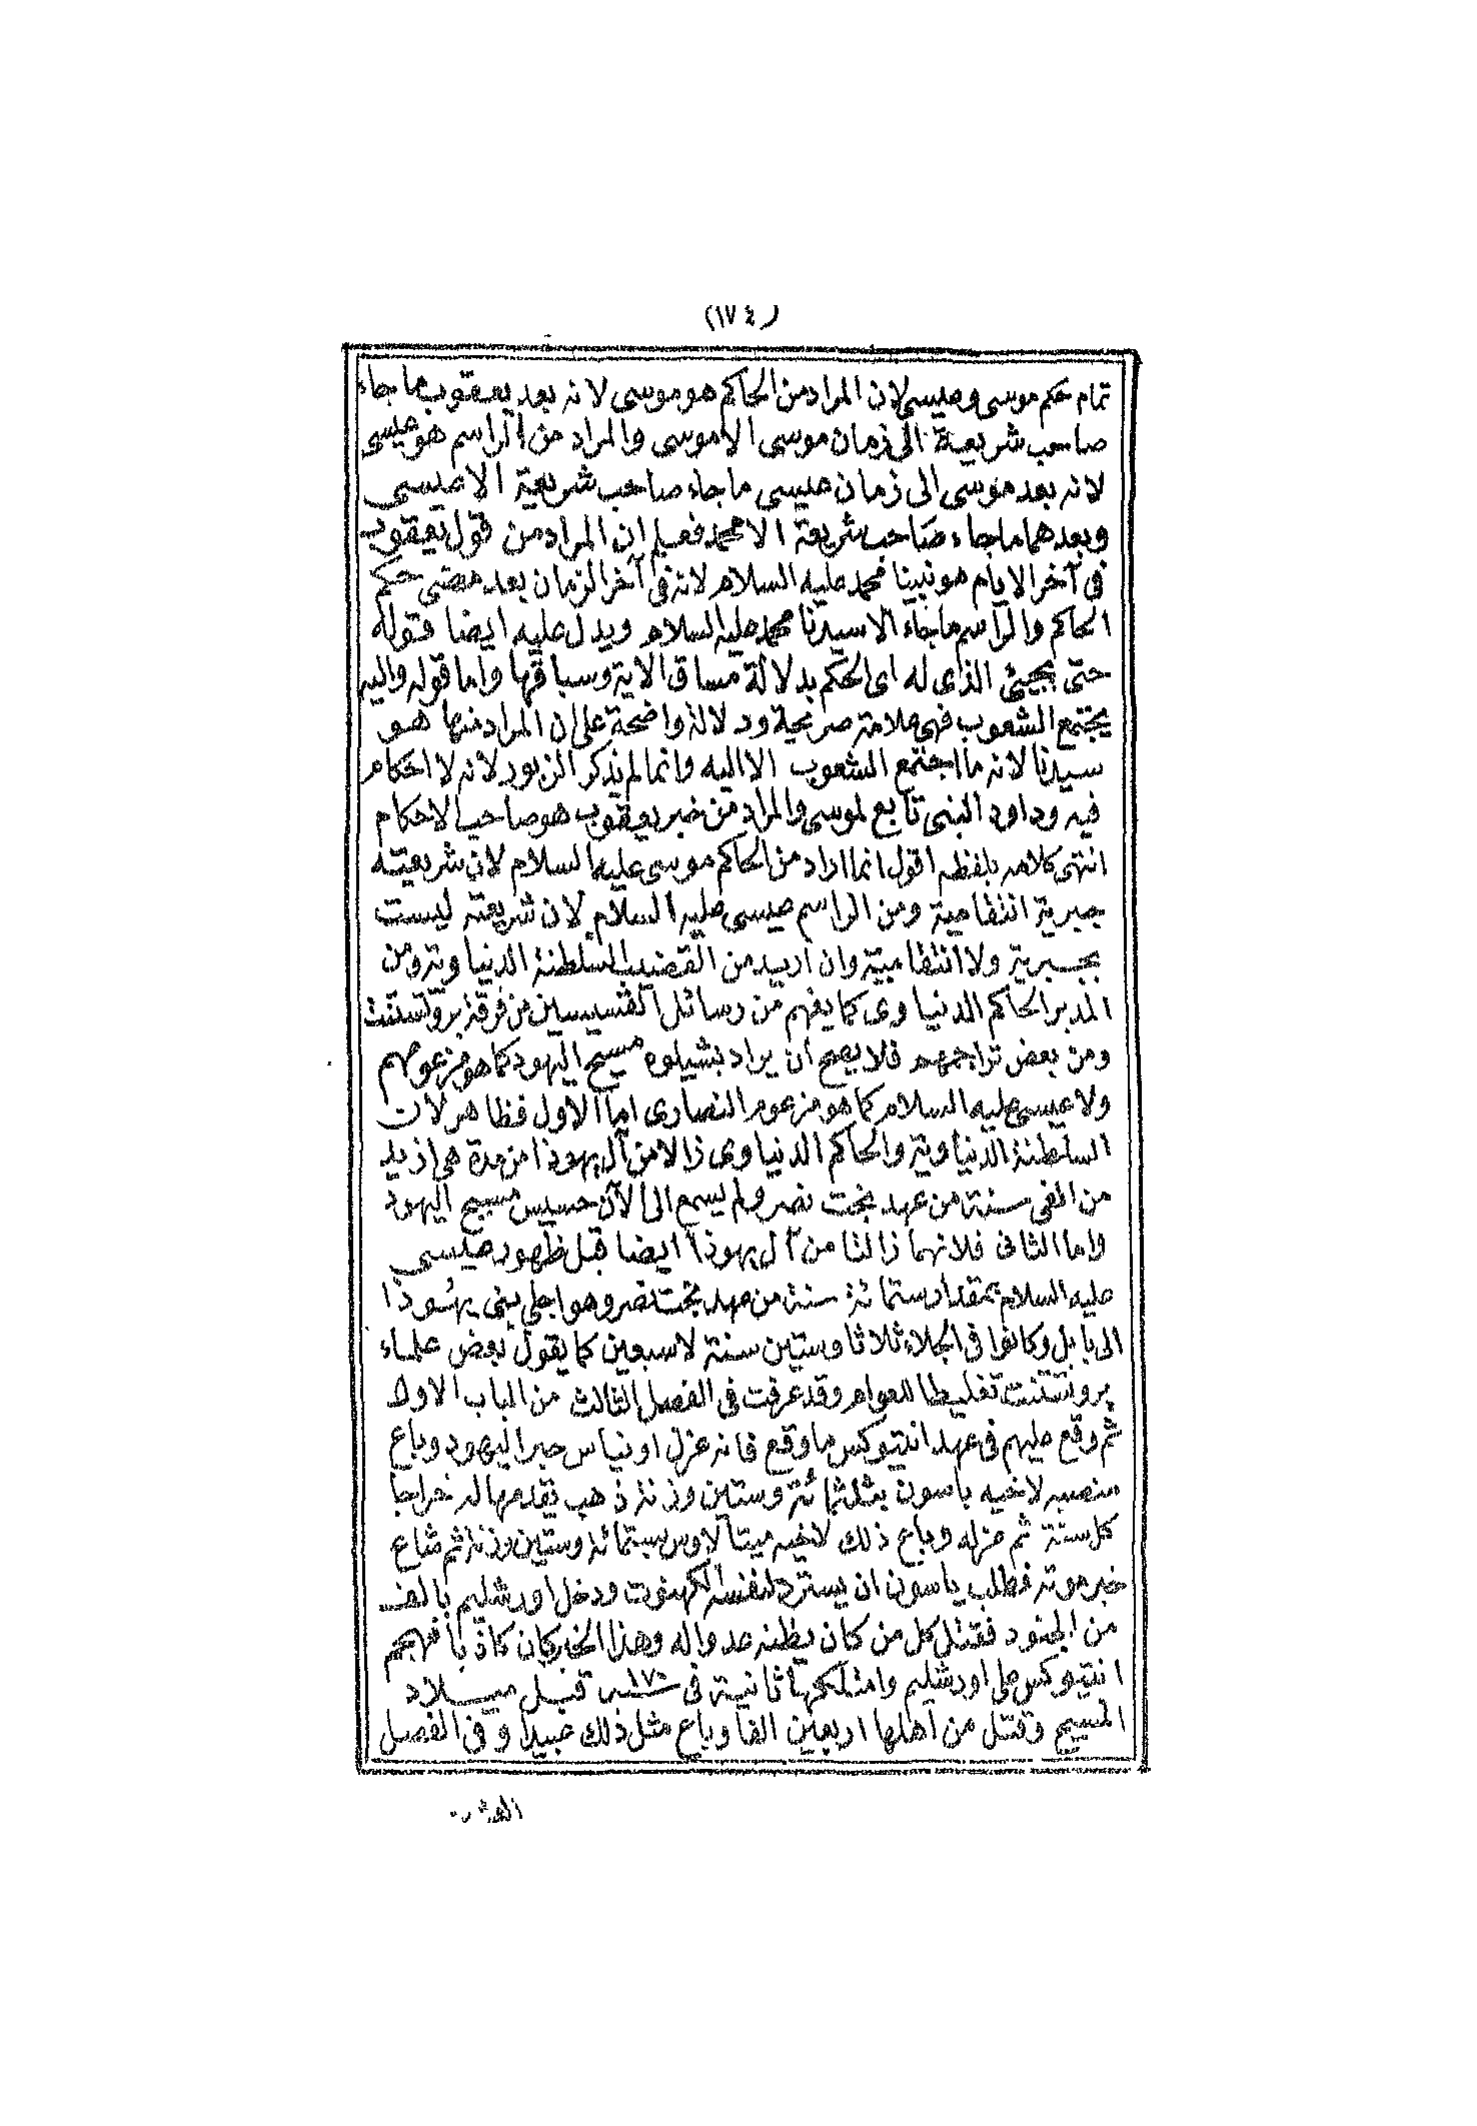 (١٧٤)
تمام حكم موسى وعيسى لان المراد من الحاكم هو موسى لانه بعد يعقوب ما جاء
صاحب شريعة الى زمان موسى الا موسى والمراد من الراسم هو عيسى
لانه بعد موسى الى زمان عيسى ما جاء صاحب شريعة الا عيسى
وبعدهما ما جاء صاحب شريعة الا محمد فعلم ان المراد من قول يعقوب
فى آخر الايام هو نبينا محمد عليه السلام لانه فى آخر الزمان بعد مضى حكم
الحاكم والراسم ما جاء الا سيدنا محمد عليه السلام ويدل عليه ايضا قوله
حتى يجيئ الذى له اى الحكم بدلالة مساق الاية وسباقها واما قوله واليه
يجتمع الشعوب فهى علامة صريحة ودلالة واضحة على ان المراد منها هو
سيدنا لانه ما اجتمع الشعوب الا اليه وانما لم يذكر الزبور لانه لا احكام
فيه وداود النبى تابع لموسى والمراد من خبر يعقوب هو صاحب الاحكام
انتهى كلامه بلفظه اقول انما اراد من الحاكم موسى عليه السلام لان شريعته
جبرية انتقامية ومن الراسم عيسى عليه السلام لان شريعته ليست
بجبرية ولا انتقامية وان اريد من القضيب السلطنة الدنياوية ومن
المدبر الحاكم الدنياوى كما يفهم من رسائل القسيسين من فرقة بروتستنت
ومن بعض تراجمهم فلا يصح ان يراد بشيلوه مسيح اليهود كما هو مزعومهم
ولا عيسى عليه السلام كما هو مزعوم النصارى اما الاول فظاهر لان
السلطنة الدنياوية والحاكم الدنياوى زالا من آل يهوذا من مدة هى ازيد
من الفى سنة من عهد بخت نصر ولم يسمع الى الآن حسيس مسيح اليهود
واما الثانى فلانهما زالتا من آل يهوذا ايضا قبل ظهور عيسى
عليه السلام بمقدار ستمائة سنة من عهد بخت نصر وهو اجلى بنى يهوذا
الى بابل وكانوا فى الجلاء ثلاثا وستين سنة لا سبعين كما يقول بعض علماء
بروتستنت تغليطا للعوام وقد عرفت فى الفصل الثالث من الباب الاول
ثم وقع عليهم فى عهد انتيوكس ما وقع فانه عزل اونياس حبر اليهود وباع
منصبه لاخيه ياسون بثلثمائة وستين وزنة ذهب يقدمها له خراجا
كل سنة ثم عزله وباع ذلك لاخيه مينالاوس بستمائة وستين وزنة ثم شاع
خبر موته فطلب ياسون ان يسترد لنفسه الكهنوت ودخل اورشليم بالف
من الجنود فقتل كل من كان يظنه عدوا له وهذا الخبر كان كاذبا فهجم
انتيوكس على اورشليم وامتلكها ثانية فى سنة ١٧٠ قبل ميلاد
المسيح وقتل من اهلها اربعين الفا وباع مثل ذلك عبيدا وفى الفصل